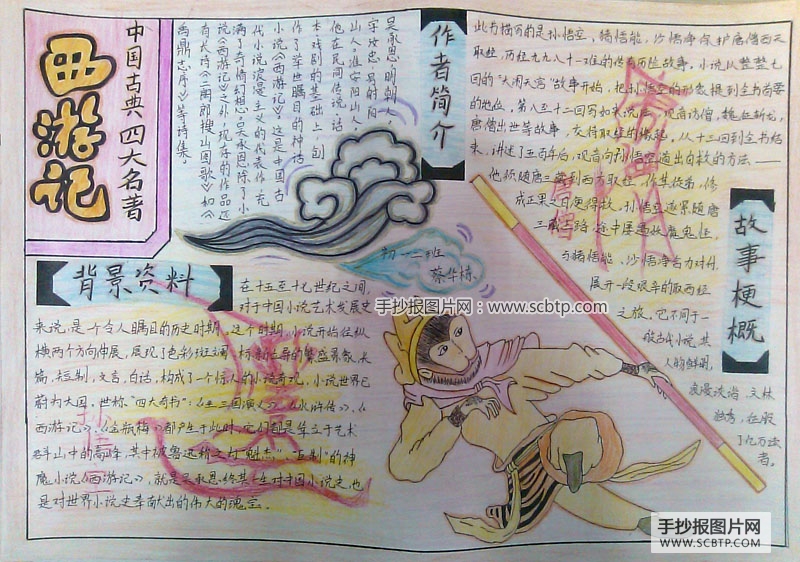 西游记
中国古典四大名著
作者简介
吴承恩,明朝人,
字汝忠,号射阳
山人,淮安阳山人。
他在民间传说、话
本戏剧的基础上,创
作了举世瞩目的神话
小说《西游记》。这是中国古
代小说浪漫主义的代表作,充
满了奇情幻想。吴承恩除了小
说《西游记》之外,现存的作品还
有长诗《二郎搜山图歌》和《
禹鼎志序》等诗集。
此书描写的是孙悟空,猪悟能,沙悟净保护唐僧西天
取经,历经九九八十一难的传奇历险故事。小说从整整七
回的"大闹天宫"故事开始,把孙悟空的形态提到全书首要
的地位,第八至十二回写如来说法,观音访僧,魏征斩龙,
唐僧出世等故事,交待取经的缘起,从十三回到全书结
束,讲述了五百年后,观音向孙悟空道出自救的方法——
他须随唐三藏到西方取经,作其徒弟,修
成正果之日便得救,孙悟空遂紧随唐
三藏上路,途中屡遇妖魔鬼怪,
与猪悟能、沙悟净合力对付,
展开一段艰辛的取西经
之旅。它不同于一
般古代小说,其
人物鲜明,
浪漫诙谐,文林
独秀,征服
了亿万读
者。
故事梗概
初一二班
蔡华楠
背景资料
在十五至十七世纪之间,
对于中国小说艺术发展史
来说,是一个令人瞩目的历史时期,这个时期,小说开始往纵
横两个方向伸展,展现了色彩斑斓
的繁盛景象,长
篇,短制,文言,白话,构成了一个惊人的小说奇观,小说世界已
蔚为大国。世称"四大奇书":《三国演义》、《水浒传》、《
西游记》、《金瓶梅》都产生于此时,它们都是耸立于艺术
群山中的高峰,其中被鲁迅称之为"魁杰"、"巨制"的神
魔小说《西游记》,就是吴承恩终其一生对中国小说史,也
是对世界小说史奉献出的伟大的瑰宝。
唐僧
孙悟空
手抄报图片网:www.scbtp.com
手抄报图片网
WWW.SCBTP.COM